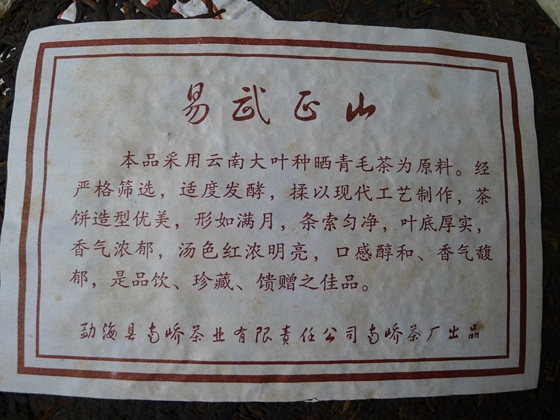 易武正山
本品采用云南大叶种晒青毛茶为原料。经
严格筛选，适度发酵，揉以现代工艺制作，茶
饼造型优美，形如满月，条索匀净，叶底厚实，
香气浓郁，汤色红浓明亮，口感醇和、香气馥
郁，是品饮、珍藏、馈赠之佳品。
勐海县南峤茶业有限责任公司南峤茶厂出品